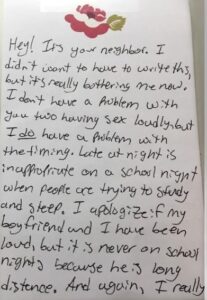 Hey! It's your neighbor. I
didn't want to have to write this,
but it's really bothering me now.
I don't have a problem with
you two having sex loudly, but
I do have a problem with
the timing. Late at night is
inappropriate on a school night
when people are trying to study
and sleep. I apologize if my
boyfriend and I have been
loud, but it is never on school
nights because he is long
distance. And again, I really